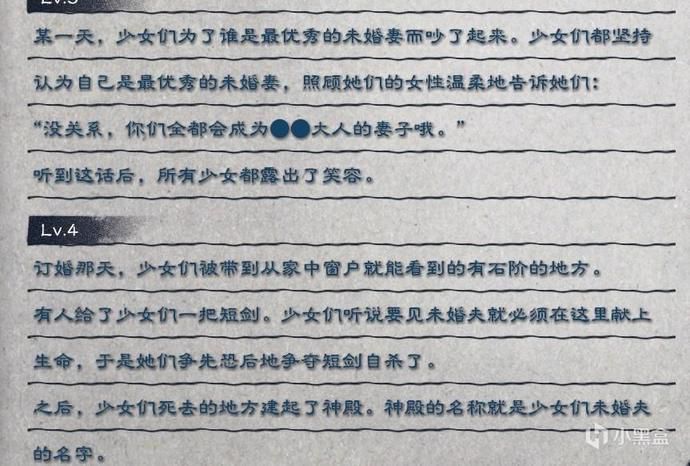 某一天，少女们为了谁是最优秀的未婚妻而吵了起来。少女们都坚持
认为自己是最优秀的未婚妻，照顾她们的女性温柔地告诉她们：
“没关系，你们全都会成为●●大人的妻子哦。”
听到这话后，所有少女都露出了笑容。
Lv.4
订婚那天，少女们被带到从家中窗户就能看到的有石阶的地方。
有人给了少女们一把短剑。少女们听说要见未婚夫就必须在这里献上
生命，于是她们争先恐后地争夺短剑自杀了。
之后，少女们死去的地方建起了神殿。神殿的名称就是少女们未婚夫
的名字。
小黑盒